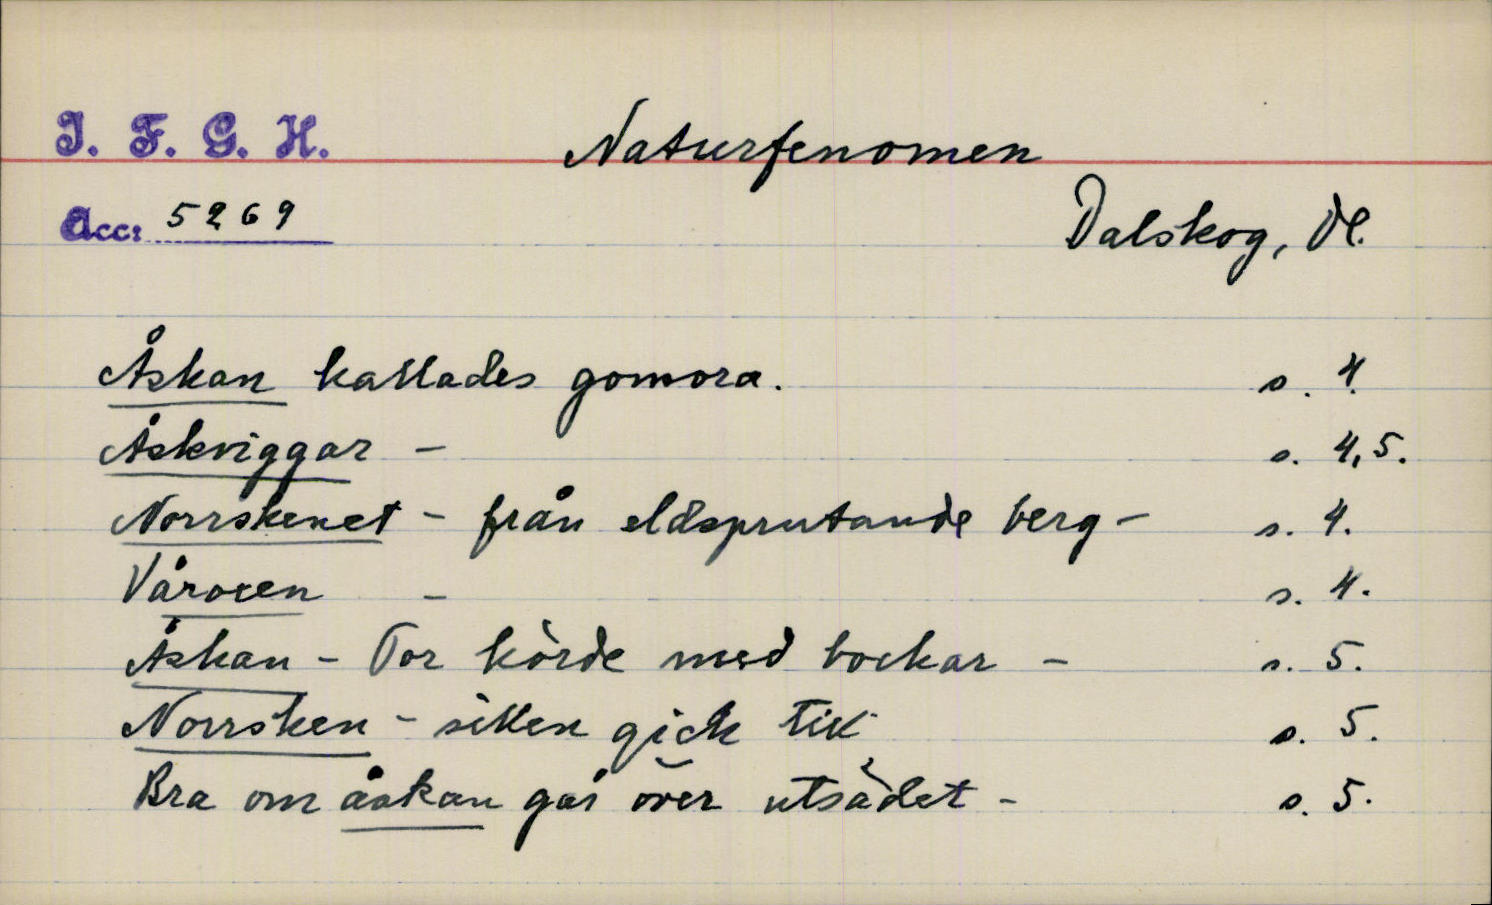 I. F. G. H.
Naturfenomen
Acc: 5269
Dalskog, Dl.
Åskan kallades gomora. s. 4.
Åskviggar – s. 4, 5.
Norrskenet – från eldsprutande berg – s. 4.
Våroxen – s. 4.
Åskan – Tor körde med bockar – s. 5.
Norrsken – sillen gick till s. 5.
Bra om åskan går över utsädet – s. 5.